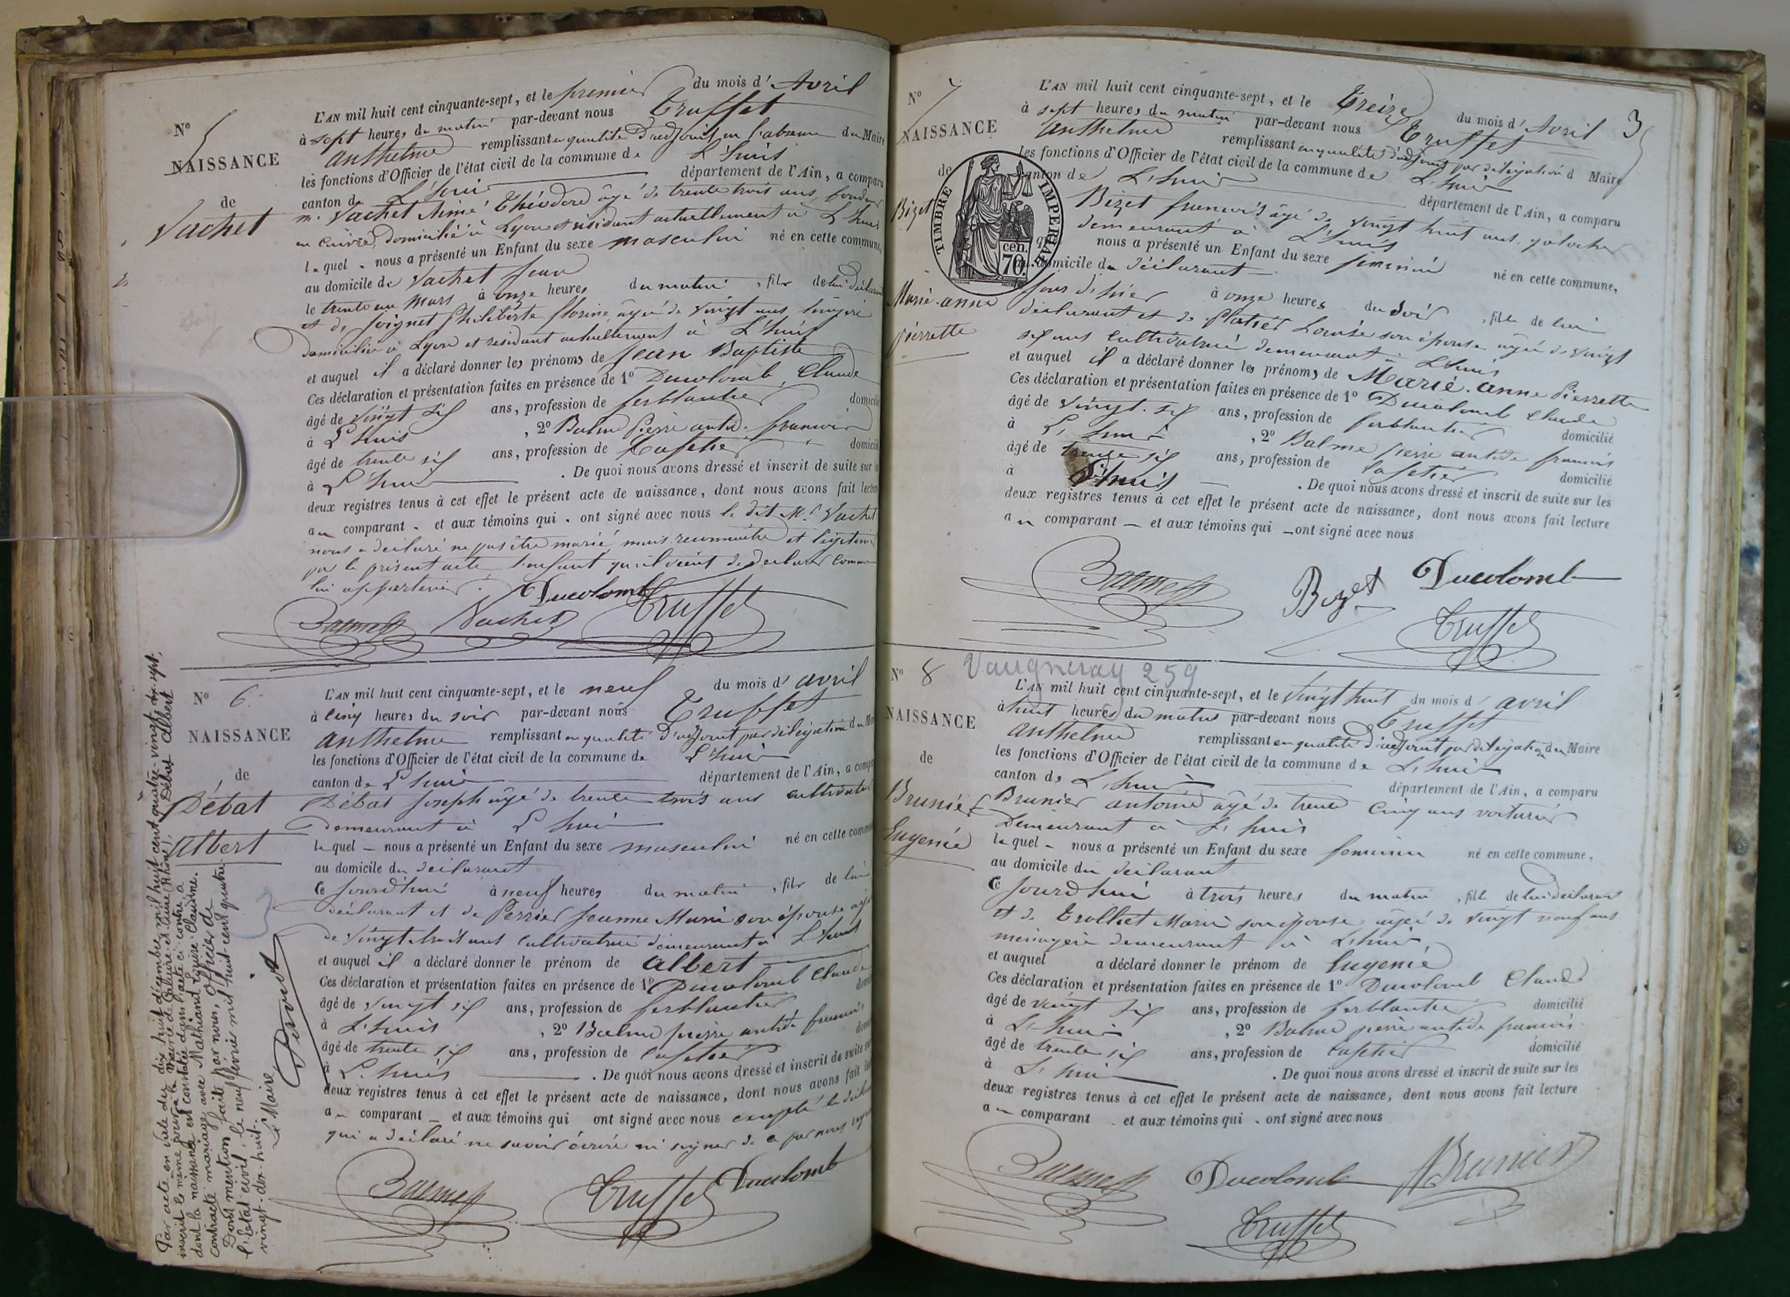 N° 5
NAISSANCE
de
Vachet
L'AN mil huit cent cinquante-sept, et le premier du mois d'Avril
à sept heures du matin par-devant nous Truffet
Anthelme remplissant en qualité d'adjoint en l'absence du Maire
les fonctions d'Officier de l'état civil de la commune de L'huis
canton de L'huis département de l'Ain, a comparu
m. Vachet Aimé Théodore âgé de trente trois ans, fondeur
en cuivre, domicilié à Lyon et résidant actuellement à L'huis
lequel nous a présenté un Enfant du sexe masculin né en cette commune,
au domicile de Vachet Jean
le trente un mars à onze heures du matin, fils de lui déclarant
et de Soignet Philiberte florine âgée de vingt ans lingère
domiciliée à Lyon et résidant actuellement à L'huis
et auquel il a déclaré donner les prénoms de Jean Baptiste
Ces déclaration et présentation faites en présence de 1° Ducolomb Claude
âgé de vingt six ans, profession de ferblantier domicilié
à L'huis, 2° Balme Pierre antide françois
âgé de trente six ans, profession de Cafetier domicilié
à L'huis . De quoi nous avons dressé et inscrit de suite sur
deux registres tenus à cet effet le présent acte de naissance, dont nous avons fait lecture
au comparant et aux témoins qui ont signé avec nous le dit Mr Vachet
nous a déclaré ne pas être marié mais reconnaître et légitimer
par le présent acte l'enfant qu'il vient de déclarer comme
lui appartenir.
Ducolomb
Balme Vachet Truffet
N° 6
NAISSANCE
de
Débat
Albert
L'AN mil huit cent cinquante-sept, et le neuf du mois d'avril
à cinq heures du soir par-devant nous Truffet
Anthelme remplissant en qualité d'adjoint par délégation du
les fonctions d'Officier de l'état civil de la commune de L'huis
canton de L'huis département de l'Ain, a comparu
Débat Joseph âgé de trente trois ans cultivateur
demeurant à L'huis
lequel nous a présenté un Enfant du sexe masculin né en cette commune
au domicile du déclarant
Ce jourd'hui à neuf heures du matin, fils de lui
déclarant et de Perrier Jeanne Marie son épouse âgée
de vingt huit ans cultivatrice demeurant à L'huis
et auquel il a déclaré donner le prénom de Albert
Ces déclaration et présentation faites en présence de 1° Ducolomb Claude
âgé de vingt six ans, profession de ferblantier
à L'huis, 2° Balme pierre antide françois
âgé de trente six ans, profession de Cafetier
à L'huis . De quoi nous avons dressé et inscrit de suite
deux registres tenus à cet effet le présent acte de naissance, dont nous avons fait
au comparant et aux témoins qui ont signé avec nous excepté le
qui a déclaré ne savoir écrire ni signer de ce par nous
Balme Truffet Ducolomb
Par acte en date du dix huit décembre mil huit cent quatre-vingt-sept,
inscrit le même jour à la mairie de Caluire et Cuire (Rhône), Débat Albert
dont la naissance est constatée dans l'acte ci-contre a
contracté mariage avec Mathiand Louise Claudine.
Dont mention faite par nous, Officier de
l'état civil, le neuf février mil huit cent quatre
vingt-dix-huit.
Le Maire
N° 7
NAISSANCE
de
Bizet
Marie-anne
Pierrette
3
TIMBRE IMPERIAL
70 cen.
L'AN mil huit cent cinquante-sept, et le Treize du mois d'Avril
à sept heures du matin par-devant nous Truffet
Anthelme remplissant en qualité d'adjoint par délégation d Maire
les fonctions d'Officier de l'état civil de la commune de L'huis
canton de L'huis département de l'Ain, a comparu
Bizet francois âgé de vingt huit ans, galocher
demeurant à L'huis
nous a présenté un Enfant du sexe féminin né en cette commune,
au domicile du déclarant
Jour d'hier à onze heures du soir, fille de lui
déclarant et de Platier Louise son épouse âgée de vingt
six ans cultivatrice demeurant à L'huis
et auquel il a déclaré donner les prénoms de Marie-anne Pierrette
Ces déclaration et présentation faites en présence de 1° Ducolomb Claude
âgé de vingt-six ans, profession de ferblantier domicilié
à L'huis, 2° Balme pierre antide francois
âgé de trente six ans, profession de Cafetier domicilié
à L'huis . De quoi nous avons dressé et inscrit de suite sur les
deux registres tenus à cet effet le présent acte de naissance, dont nous avons fait lecture
au comparant et aux témoins qui ont signé avec nous
Balme Bizet Ducolomb
Truffet
N° 8 Vaugneray 259
NAISSANCE
de
Brunier
Eugénie
L'AN mil huit cent cinquante-sept, et le vingt huit du mois d'avril
à huit heures du matin par-devant nous Truffet
Anthelme remplissant en qualité d'adjoint par délégation du Maire
les fonctions d'Officier de l'état civil de la commune de L'huis
canton de L'huis département de l'Ain, a comparu
Brunier antoine âgé de trente Cinq ans voiturier
Demeurant à L'huis
lequel nous a présenté un Enfant du sexe féminin né en cette commune,
au domicile du déclarant
Ce jourd'hui à trois heures du matin, fille de lui déclarant
et de Trolliet Marie son épouse âgée de vingt neuf ans
ménagère demeurant à L'huis
et auquel a déclaré donner le prénom de Eugénie
Ces déclaration et présentation faites en présence de 1° Ducolomb Claude
âgé de vingt six ans, profession de ferblantier domicilié
à L'huis, 2° Balme pierre antide francois
âgé de trente six ans, profession de Cafetier domicilié
à L'huis . De quoi nous avons dressé et inscrit de suite sur les
deux registres tenus à cet effet le présent acte de naissance, dont nous avons fait lecture
au comparant et aux témoins qui ont signé avec nous
Balme Ducolomb Brunier
Truffet